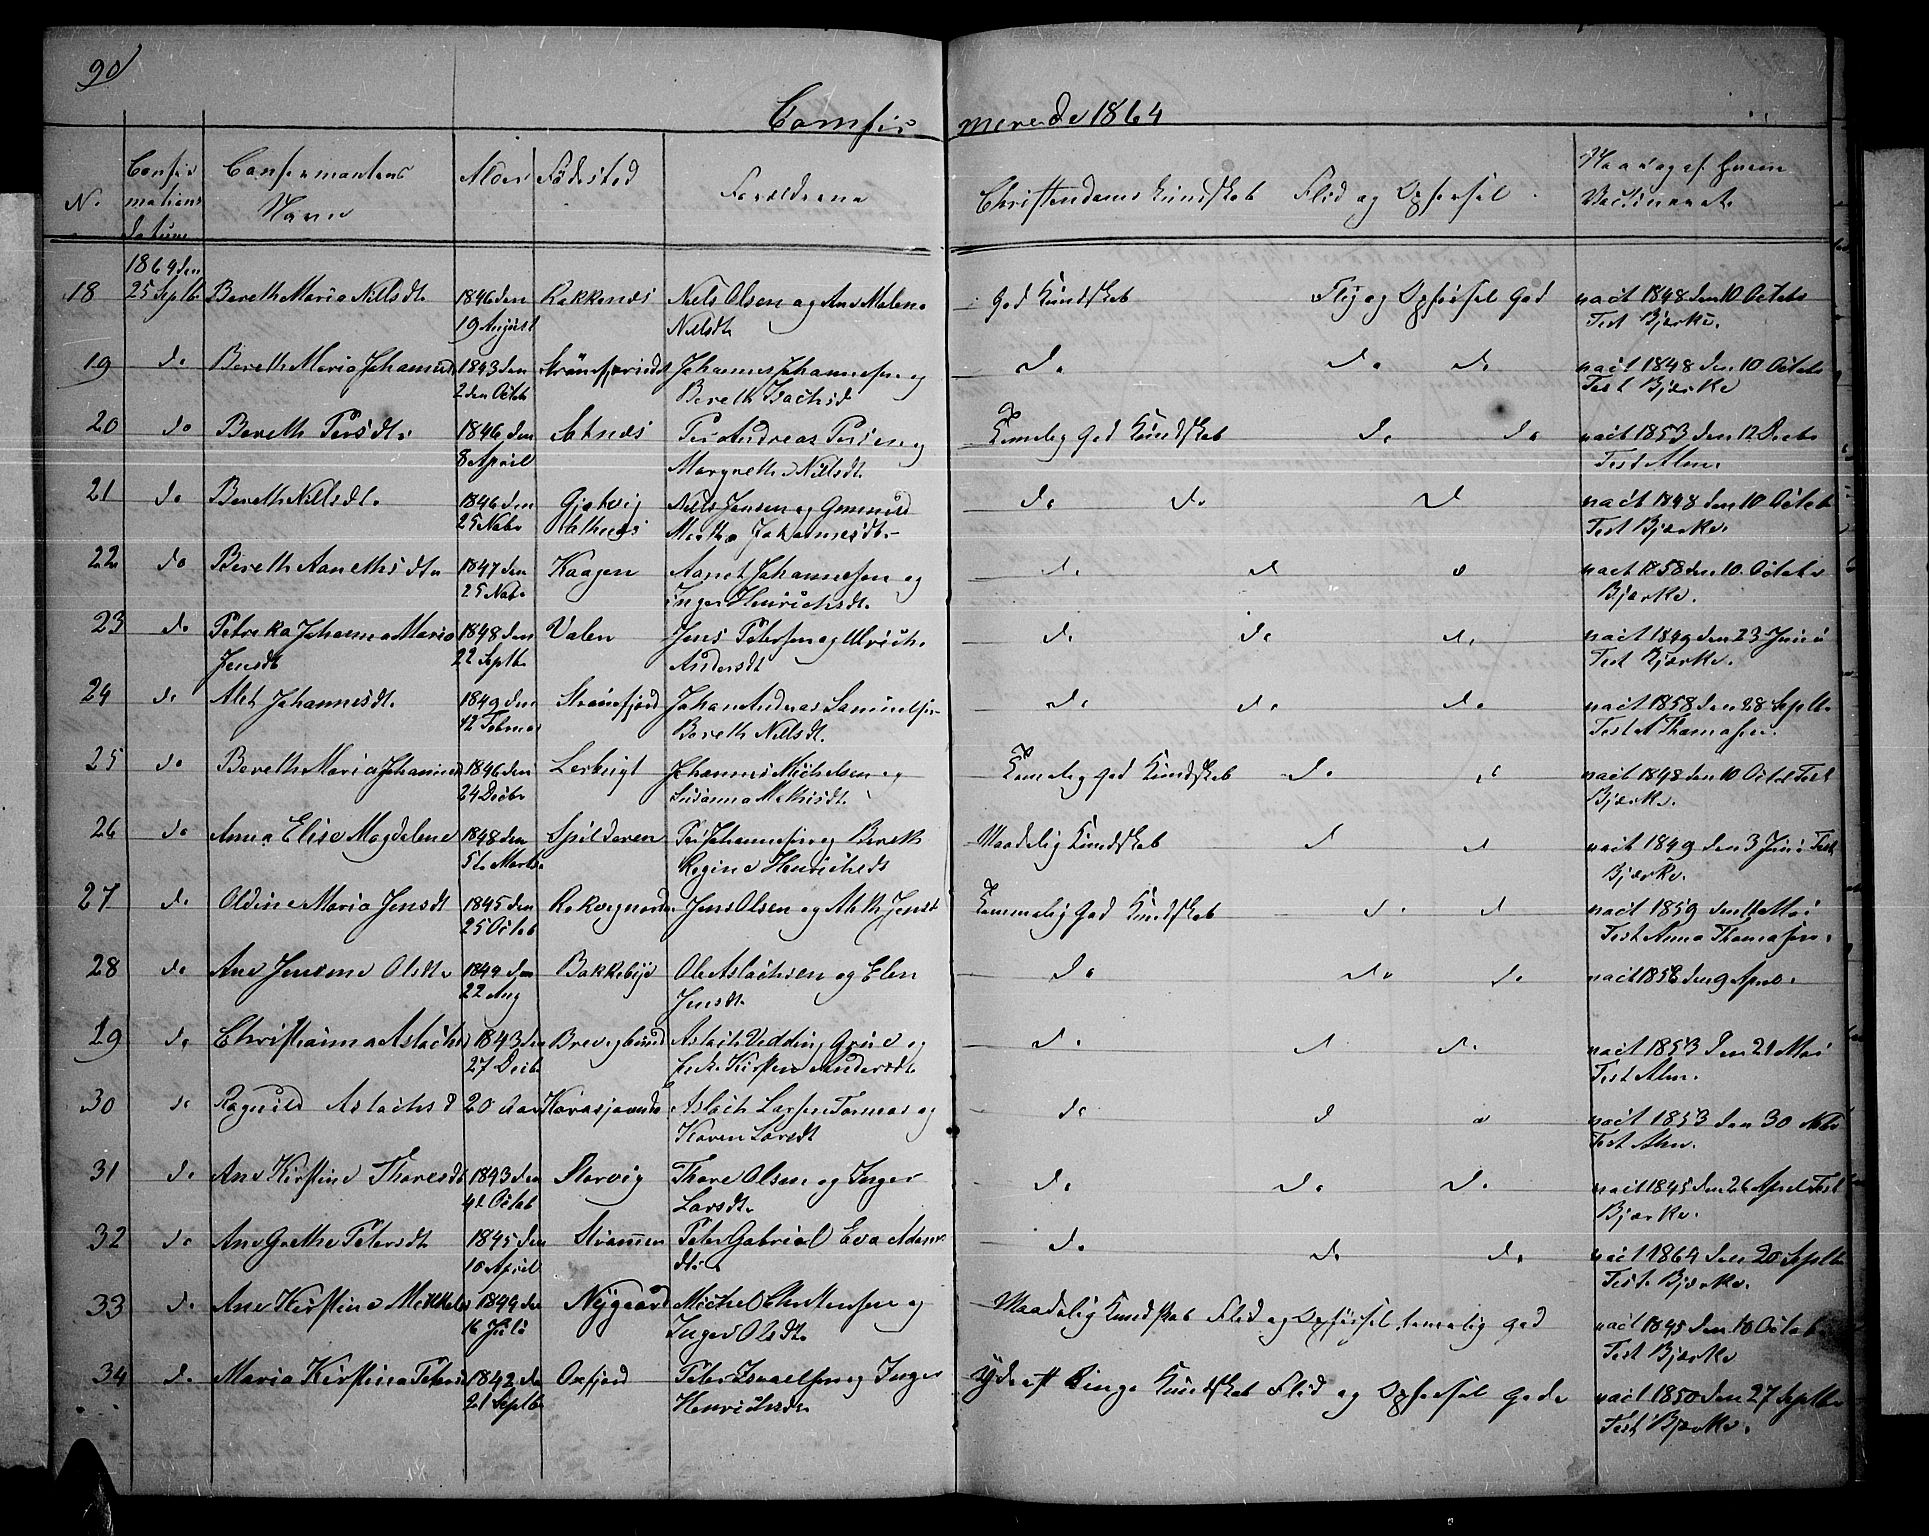 90
Comfir merede 1864
N.
Confir
mations
datum
Confirmantens
Navn
Alder
Fødested
Forældrene
Christendoms Kundskab
Flid og Opførsel
Vaccineret
18 1864 den 25 Septb Bereth Maria Nilsdt. 1846 den 19 August Rakkenæs Niels Olsen og Ane Malene Nilsdt. God Kundskab Flig og Opførsel God vacit 1848 den 10 Octobr Test Bjerke.
19 do Bereth Maria Johannsd 1843 den 2 den Octob Johannes Johannesen og Bereth Isachsd do do do vacit 1848 den 10 Octobr Test Bjerke
20 do Bereth Persdt. 1846 den 8 April Per Andreas Persen og Margrethe Nilsdt. Temelig God Kundskab do do vacit 1853 den 12 Decbr Test Alm.
21 do Bereth Nilsdt. 1846 den 25 Nobr Niels Jensen og Johannesdt. do do do vacit 1848 den 10 Octob Test Bjerke.
22 do Bereth Aanethsdt. 1847 den 25 Nobr Kaagen Aanet Johannesen og Inger Henrichsdt. do do do vact 1858 den 10. Octobr Bjerke.
23 do Petreka Johanna Maria Jensdt 1848 den 22 Septb Valen Jens Petersen og Ulriche Andersdt do do do vacit 1849 den 23 Juni Test Bjerke.
24 do Alet Johannesdt. 1849 den 12 Februar Strømfjord Johan Andreas Samuelsen Bereth Nilsdt. do do do vacit 1858 den 28 Septb. Test A Thomasen.
25 do Bereth Maria Johannesd 1846 den 24 Decbr Johannes Michelsen og Susanna Mathisdt. Temelig God Kundskab do do vacit 1848 den 10 Octob Test Bjerke.
26 do Anna Elise Magdelene 1848 den 5te Marts Spilderen Per Johannesen og Bereth Regine Henrichsdt Maadelig Kundskab do do vacit 1849 den 3 Juni Test Bjerke.
27 do Oldine Maria Jensdt 1845 den 25 Octob Jens Olsen og Aleth Jensd Temmelig God Kundskab do do vacit 1859 den Mai Test Anna Thomasen.
28 do Ane Jensine Olsdt. 1849 den 22 Aug Bakkebye Ole Aslachsen og Elen Jensdt. do do do vacit 1858 den 9 April.
29 do Christianna Aslachs 1843 den 27 Decb Brevigbund Aslach Vedding Grud og Kirsten Andersdt. do do do vacit 1853 den 21 Mai Test Alm.
30 do Ragnild Aslachsd 20 Aar Aslach Larsen Tornas og Karen Larsdt do do do vacit 1853 den 30 Nobr Test Alm.
31 do Ane Kirstine Thoresdt 1843 den 4de Octob Storvig Thore Olsen og Inger Larsdt. do do do vacit 1845 den 26 April Test Bjerke.
32 do Ane Grethe Petersdt 1845 den 10 April Strømmen Peter Gabriel Eva Adams dt. do do do vacit 1864 den 20 Septb Test. Bjerke.
33 do Ane Kirstine Mikkels 1849 den 16 Juli Nygaard Michel Christensen og Inger Olsdt. Maadelig Kundskab Flid og Opførsel temelig god vacit 1845 den 10 Octob Test Bjerke
34 do Maria Kirstina Peters 1842 den 21 Septb Oxfjord Peter Israelsen og Inger Henrichsdt. Yderst Ringe Kundskab Flid og Opførsel Gode vacit 1850 den 27 Septb Test Bjerke.